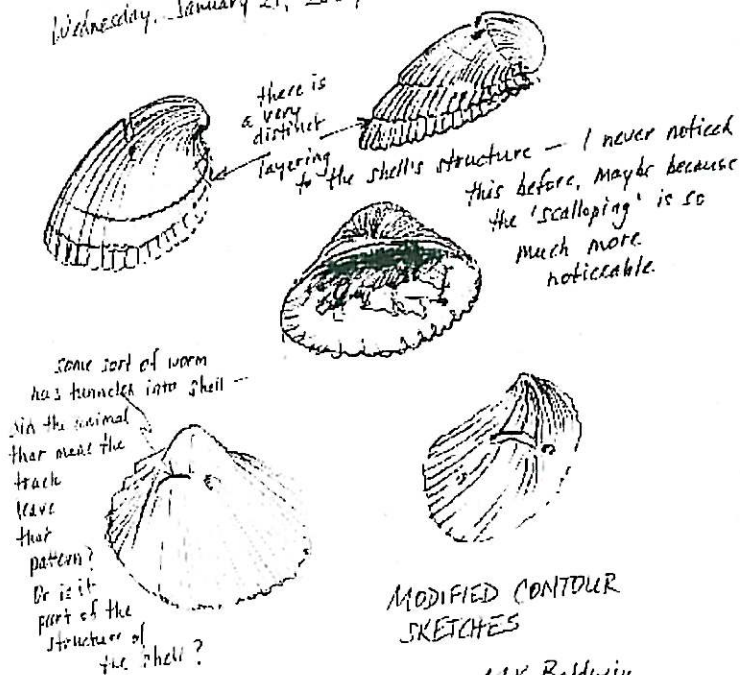 Wednesday, January 21,
there is
a very
distinct
layering
to the shell's structure — I never noticed
this before, maybe because
the 'scalloping' is so
much more
noticeable.
some sort of worm
has tunneled into shell —
Did the animal
that made the
track
leave
that
pattern?
Or is it
part of the
structure of
the shell?
MODIFIED CONTOUR
SKETCHES
Baldwin